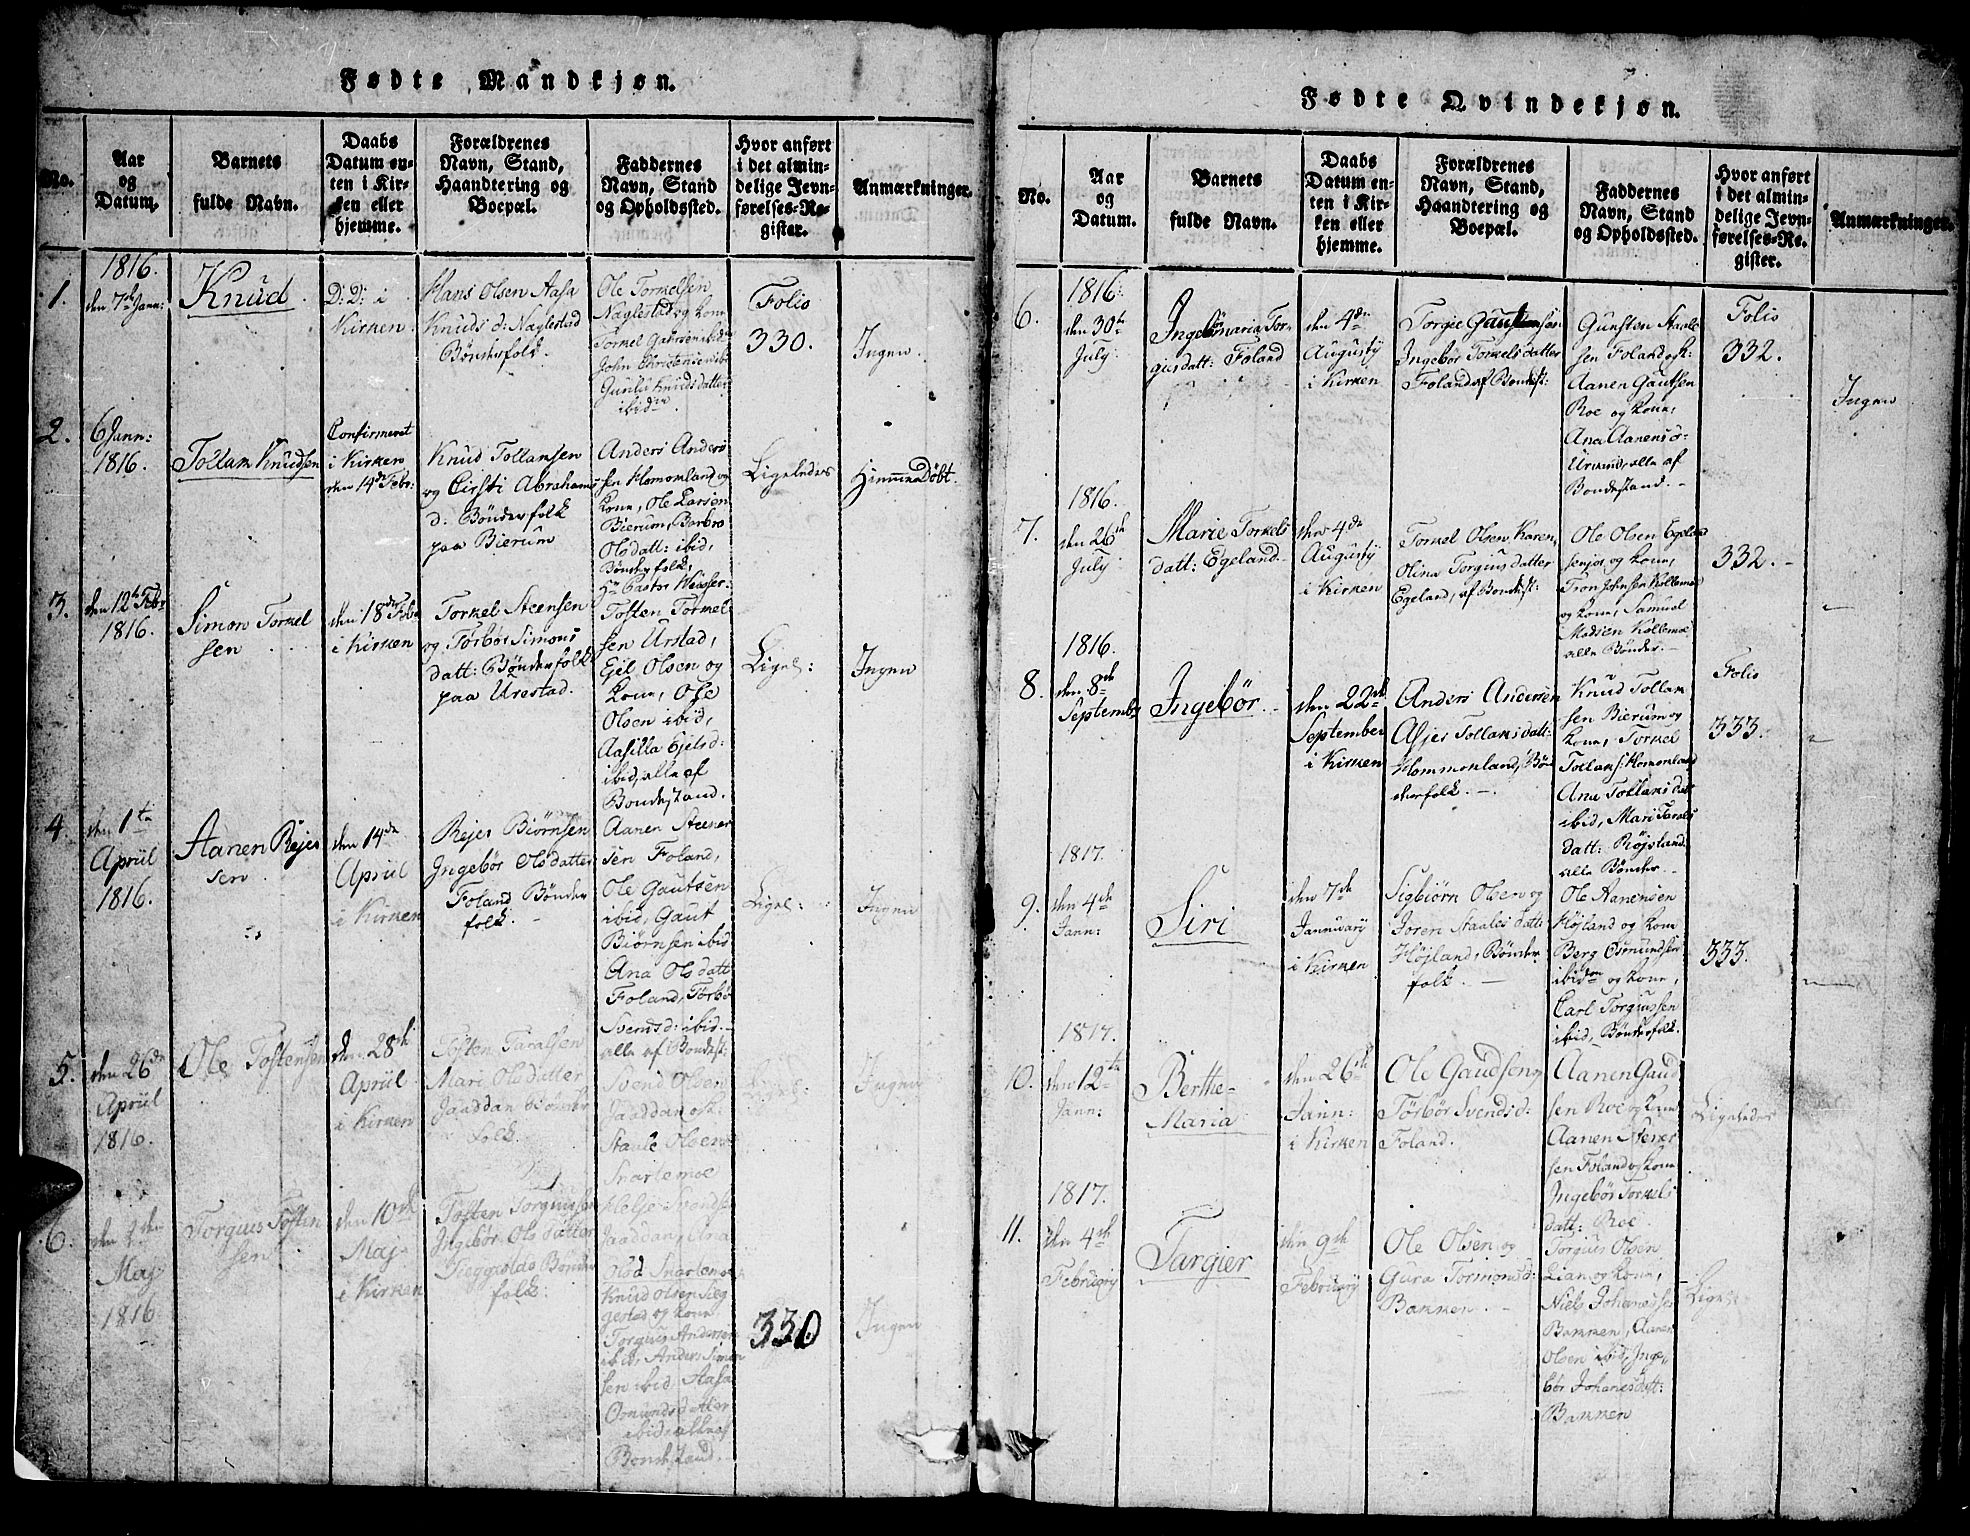 Fødte Mandkjøn.
No.
Aar
og
Datum.
Barnets
fulde Navn.
Daabs
Datum en-
ten i Kir-
ken eller
hjemme.
Forældrenes
Navn, Stand,
Haandtering og
Boepæl.
Faddernes
Navn, Stand
og Opholdssted.
Hvor anført
i det almin-
delige Jevn-
førelses-Re-
gister.
Anmærkninger.
1.
1816.
den 7de Jann:
Knud
D: D: i
Kirken.
Hans Olsen Aasa
Knuds d: Naglestad
Bønderfolk.
Ole Torkelsen
Naglestad og kone
Torkel
John Christensen ibid
Gunild Knudsdatter
ibid
Folio
330.
Ingen
2.
6 Jann:
1816.
Tollam Knudsen
Confirmeret
i Kirken
den 14de Febr:
Knud Tollamsen
og Cirsti Abrahams
d: Bønderfolk
paa Bierum
Anders Anders
sen Homomland og
kone, Ole Larsen
Bierum, Barbro
Olsdatt: ibid,
Bønderfolk,
Hr Pastor
Ligeledes
HjemmeDøbt.
3.
den 12te Febr
1816.
Simon Torkel
sen
den 18de Febr
i Kirken
Torkel Steensen
og Torbør Simons
datt: Bønderfolk
paa Urestad.
Tosten Torkel
sen Urstad,
Ejel Olsen og
kone, Ose
Olsen ibid,
Aasilla Ejelsd:
ibid, alle af
Bondestand.
Ligel:
Ingen
4.
den 1te
Apriil
1816.
Aanen Rejer
sen
den 14de
Apriil
i Kirken
Rejer Biørnsen
Ingebør Olsdatter
Foland Bønder
folk.
Aanen Steener
sen Foland,
Ole Gautsen
ibid, Gaut
Biørnsen ibid
Ana Olsdatt
Foland, Torbør
Svensd: ibid.
alle af Bondest:
Ligel:
Ingen
5.
den 26de
Apriil
1816.
Ole Tostensen
den 28de
Apriil
i Kirken
Tosten Taralsen
Mari Olsdatter
Jaaddan Bønder
folk.
Svend Olsen
Jaaddan og k:
Staale Olsen
Snartemoe
Helje Svends
Jaaddan, Ana
Olsd Snartemoe
Ligel:
Ingen
6.
den 2den
Maj
1816
Torgius Tosten
sen
den 10de
Maj
i Kirken
Tosten Torgiussen
Ingebør Olsdatter
Bønder
folk:
Knud Olsen Sieg
gestad og kone
Torgius Andersen
ibid, Anders Simon
sen ibid, Aasa
Osmundsdatter
ibid, alle af
Bondestand.
330
Ingen
Fødte Qvindekjøn.
No.
Aar
og
Datum.
Barnets
fulde Navn.
Daabs
Datum en-
ten i Kir-
ken eller
hjemme.
Forældrenes
Navn, Stand,
Haandtering og
Boepæl.
Faddernes
Navn, Stand
og Opholdssted.
Hvor anført
i det almin-
delige Jevn-
førelses-Re-
gister.
Anmærkninger.
6.
1816.
den 30te
July
Ingebormaria Tor-
giusdatt: Foland
den 4de
Augusty
i Kirken
Torgie
Ingebør Torkelsdatter
Foland af Bondest:
Gunsten Staale
sen Foland og k:
Aanen Gautsen
Roe og kone,
Ana Aanens d:
alle af
Bondestand.
Folio
332.
Ingen
7.
1816.
den 26de
July
Marie Torkels
datt: Egeland.
den 4de
Augusty
i Kirken
Torkel Olsen, Karen
Olina Torgius datter
Egeland, af Bondest:
Ole Olsen Egeland
senjor og kone,
Tron Johnsen Kollemoe
og kone, Samuel
Madsen Kollemoe
alle Bønder.
332.
8.
1816.
den 8de
September
Ingebør.
den 22de
September
i Kirken
Anders Andersen
Asjer Tollaksdatt:
Hommomland, Bøn
derfolk.
Knud Tollak
sen Bierum og
kone, Torkel
Tollaks: Homomland
Ana Tollaksdatt
ibid, Mari Tarals
datt: Røjsland.
alle Bønder.
Folio
333.
9.
1817.
den 4de
Jann:
Siri
den 7de
Januvary
i Kirken
Sigbiørn Olsen og
Joren Staalesdatt:
Højland, Bønder
folk.
Ole Aanensen
Højland og kone
Berg Osmundsen
ibidem og kone,
Carl Torgiussen
ibid, Bønderfolk.
333.
10.
1817.
den 12te
Jann:
Berthe-
Maria
den 26de
Jann:
i Kirken
Ole Gaudsen og
Torbør Svendsd:
Foland.
Aanen Gaud
sen Roe og kone
Aanen Stener
sen Foland og kone
Ingebør Torkels
datt: Roe
Ligeledes
11.
1817.
den 4de
February
Targier
den 9de
February
Ole Olsen og
Gura Tormonsd:
Bakken.
Torgius Olsen
Lian og kone,
Niels Johannessen
Bakken, Aanen
Olsen ibid, Inge-
bør Johanesdatt:
Bakken
Ligel: